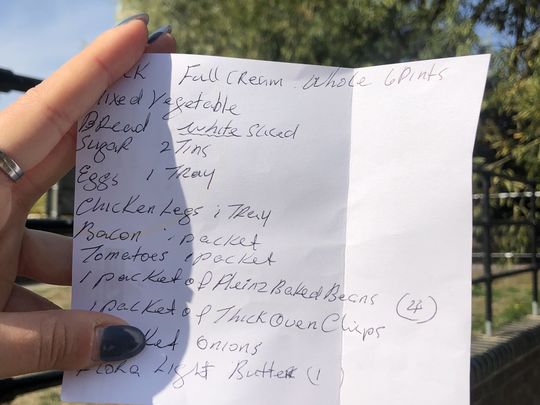 Full Cream. Whole 6 Pints
Mixed Vegetable
Bread white sliced
Sugar 2 Tins
Eggs 1 Tray
Chicken Legs 1 Tray
Bacon 1 packet
Tomatoes 1 packet
1 packet of Heinz Baked Beans (24)
1 packet of Thick Oven Chips
onions
Flora Light Butter (1)